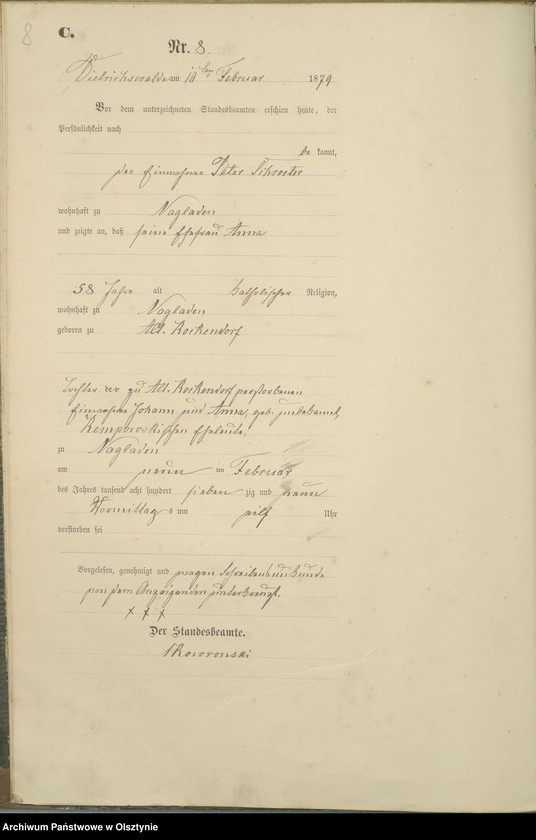 8
C.
Nr. 8.
Dietrichswalde am 10 ten Februar 1879
Vor dem unterzeichneten Standesbeamten erschien heute, der
Persönlichkeit nach
be kannt,
der Einwohner Peter Schroeter
wohnhaft zu Nagladen
und zeigte an, daß seine Ehefrau Anna
58 Jahre alt katholischer Religion,
wohnhaft zu Nagladen
geboren zu Alt. Kockendorf
Tochter der zu Alt. Kockendorf verstorbenen
Einwohner Johann und Anna, geb. unbekannt,
Kempowskischen Eheleute,
zu Nagladen
am neun ten Februar
des Jahres tausend acht hundert sieben zig und neun
Vormittag s um elf Uhr
verstorben sei
Vorgelesen, genehmigt und wegen Schreibensunkunde
von dem Anzeigenden unterkreuzt.
× × ×
Der Standesbeamte.
Skowronski
Archiwum Państwowe w Olsztynie